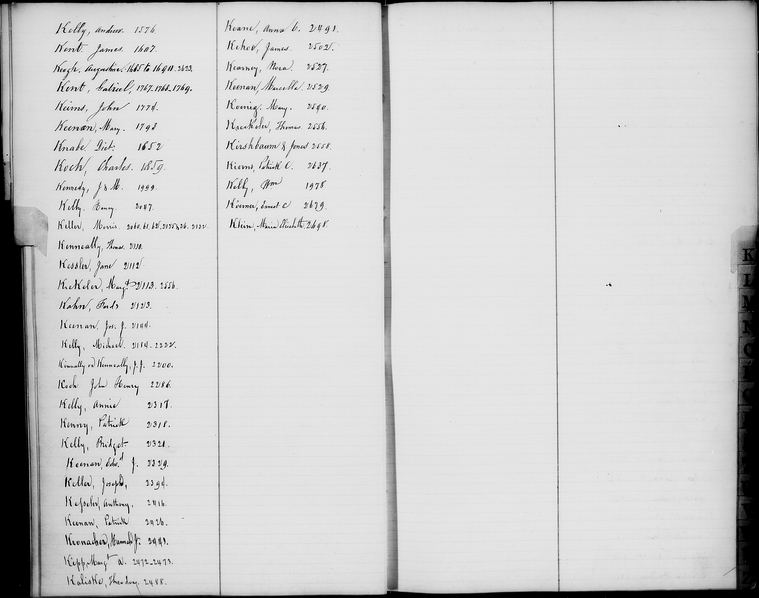 Kelly, Andrew. 1576.
Kent James. 1607.
Keogh, Augustine. 1685 to 1691.
Kent, Gabriel, 1767. 1768. 1769.
Keims, John 1774.
Keenan, Mary. 1793
Knabe 1652
Koch, Charles. 1859.
Kennedy, J. M. 1999.
Kelly, Henry. 2087.
Keller, Morris.
Kenneally, Thomas. 2110.
Kessler, Jane 2112
Kiekeler, Margt. 2113. 2556.
Kahn, Ferd. 2123.
Keenan, Jos. J. 2144.
Kelly, Michael. 2184. 2232.
Kenneally, J. J. 2200.
Koch John Henry 2286.
Kelly, Annie 2317.
Kenny, Patrick 2318.
Kelly, Bridget 2321.
Keenan, Edwd. J. 2329.
Keller, Joseph, 2394.
Kessler, Anthony. 2416.
Keenan, Patrick 2426.
Kronacher, J. 2443.
Kipp, Margt. A. 2472-2473.
Kaliske, Theodore, 2488.
Keane, Anna C. 2491.
Kehoe, James. 2502.
Kearney, Nora. 2527.
Keenan, Marcella. 2529.
Koenig, Mary. 2540.
Kieckeler, Thomas 2556.
Kirshbaum & Jones 2558.
Kierns, Patrick C. 2637.
Kelly, Wm 1978
Koerner, Ernest C 2679.
Klein, Maria Elisabeth. 2698.
K
L
M
N
O